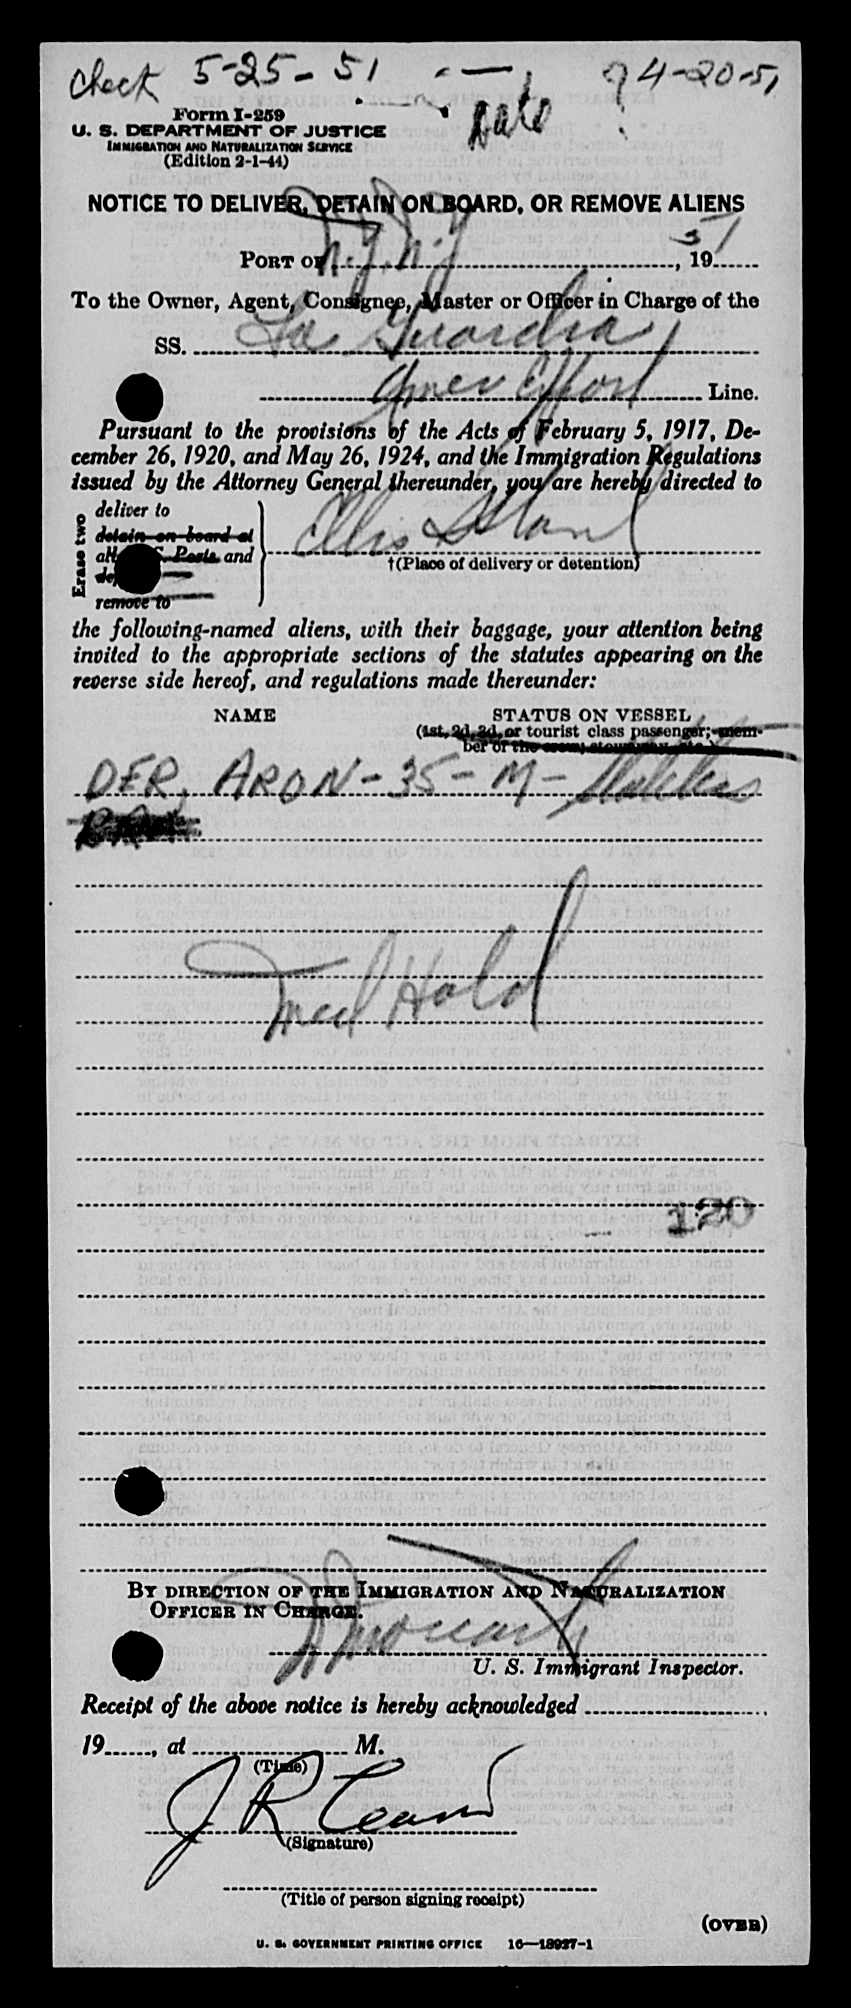 check 5-25-51 ? 4-20-51
Date
Form I-259
U. S. DEPARTMENT OF JUSTICE
IMMIGRATION AND NATURALIZATION SERVICE
(Edition 2-1-44)
NOTICE TO DELIVER, DETAIN ON BOARD, OR REMOVE ALIENS
PORT OF N.Y. N.Y, 1951
To the Owner, Agent, Consignee, Master or Officer in Charge of the
SS. La Guardia
Amer Export Line.
Pursuant to the provisions of the Acts of February 5, 1917, De-
cember 26, 1920, and May 26, 1924, and the Immigration Regulations
issued by the Attorney General thereunder, you are hereby directed to
Erase two
deliver to
detain on board at
all U. S. Ports and
remove to
Ellis Island
†(Place of delivery or detention)
the following-named aliens, with their baggage, your attention being
invited to the appropriate sections of the statutes appearing on the
reverse side hereof, and regulations made thereunder:
NAME STATUS ON VESSEL
(1st, 2d, 3d, or tourist class passenger; mem-
ber of the crew, stowaway, etc.)
DER, ARON - 35 - M -
Med Hold
120
BY DIRECTION OF THE IMMIGRATION AND NATURALIZATION
OFFICER IN CHARGE.
U. S. Immigrant Inspector.
Receipt of the above notice is hereby acknowledged
19, at M.
(Time)
J R
(Signature)
(Title of person signing receipt)
(OVER)
U. S. GOVERNMENT PRINTING OFFICE 16—18927-1